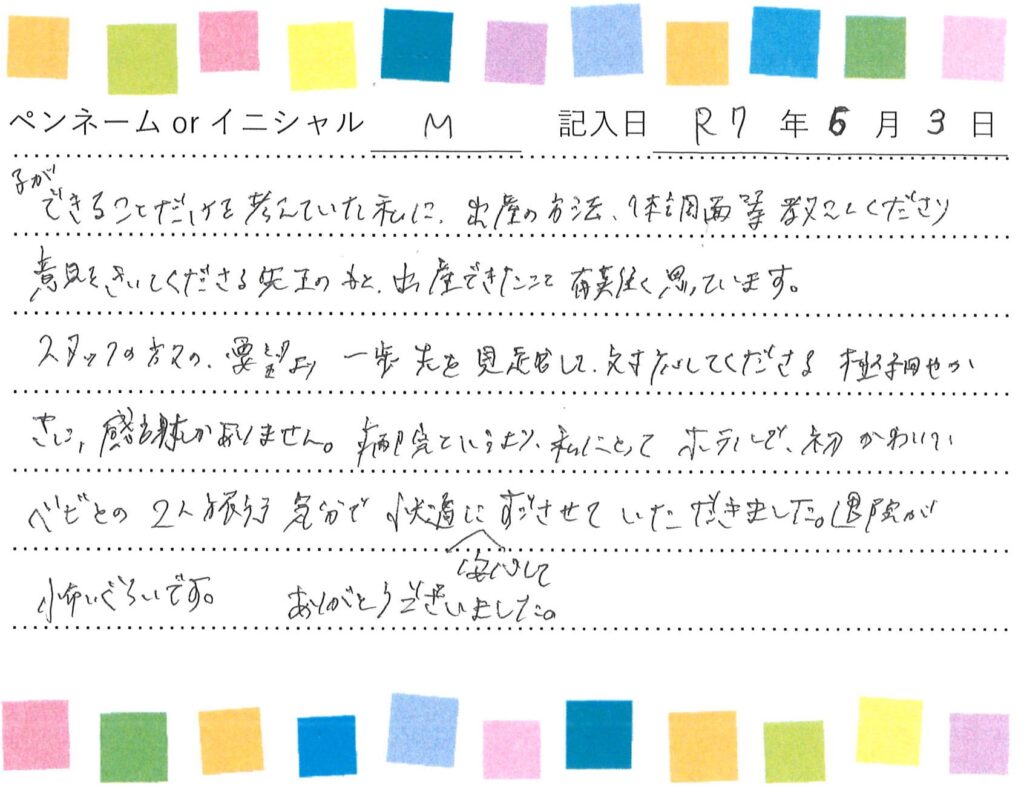 ペンネーム or イニシャル M 記入日 R7 年 6 月 3 日
子ができることだけを考えていた私に、出産の方法、体調面等教えてくださり
意見をきいてくださる先生のもと、出産できたこと有難く思っています。
スタッフの方々の、要望より一歩先を見据えて、対応してくださる極細やか
さに、感謝しかありません。病院というより、私にとってホテルで、初かわいい
ベビとの2人旅行気分で快適に安心してすごさせていただきました。退院が
怖いぐらいです。 ありがとうございました。